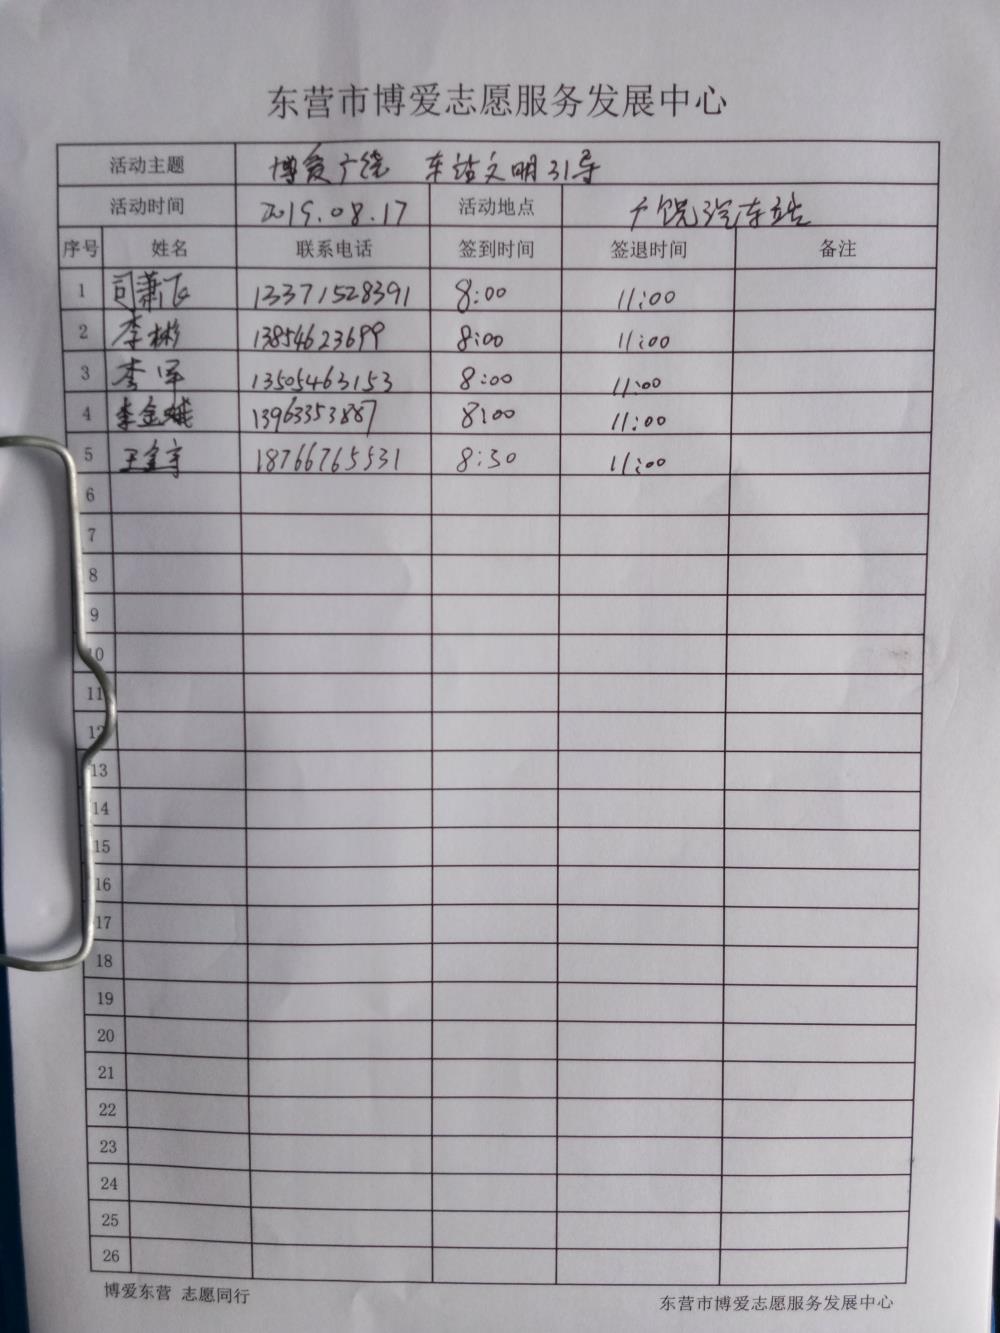 东营市博爱志愿服务发展中心
活动主题 博爱广饶 车站文明引导
活动时间 2019.08.17 活动地点 广饶汽车站
序号 姓名 联系电话 签到时间 签退时间 备注
1 司萧飞 13371528391 8:00 11:00
2 李彬 13854623699 8:00 11:00
3 李军 13505463153 8:00 11:00
4 李金娥 13963353887 8:00 11:00
5 王金宇 18766765531 8:30 11:00
6
7
8
9
10
11
12
13
14
15
16
17
18
19
20
21
22
23
24
25
26
博爱东营 志愿同行 东营市博爱志愿服务发展中心